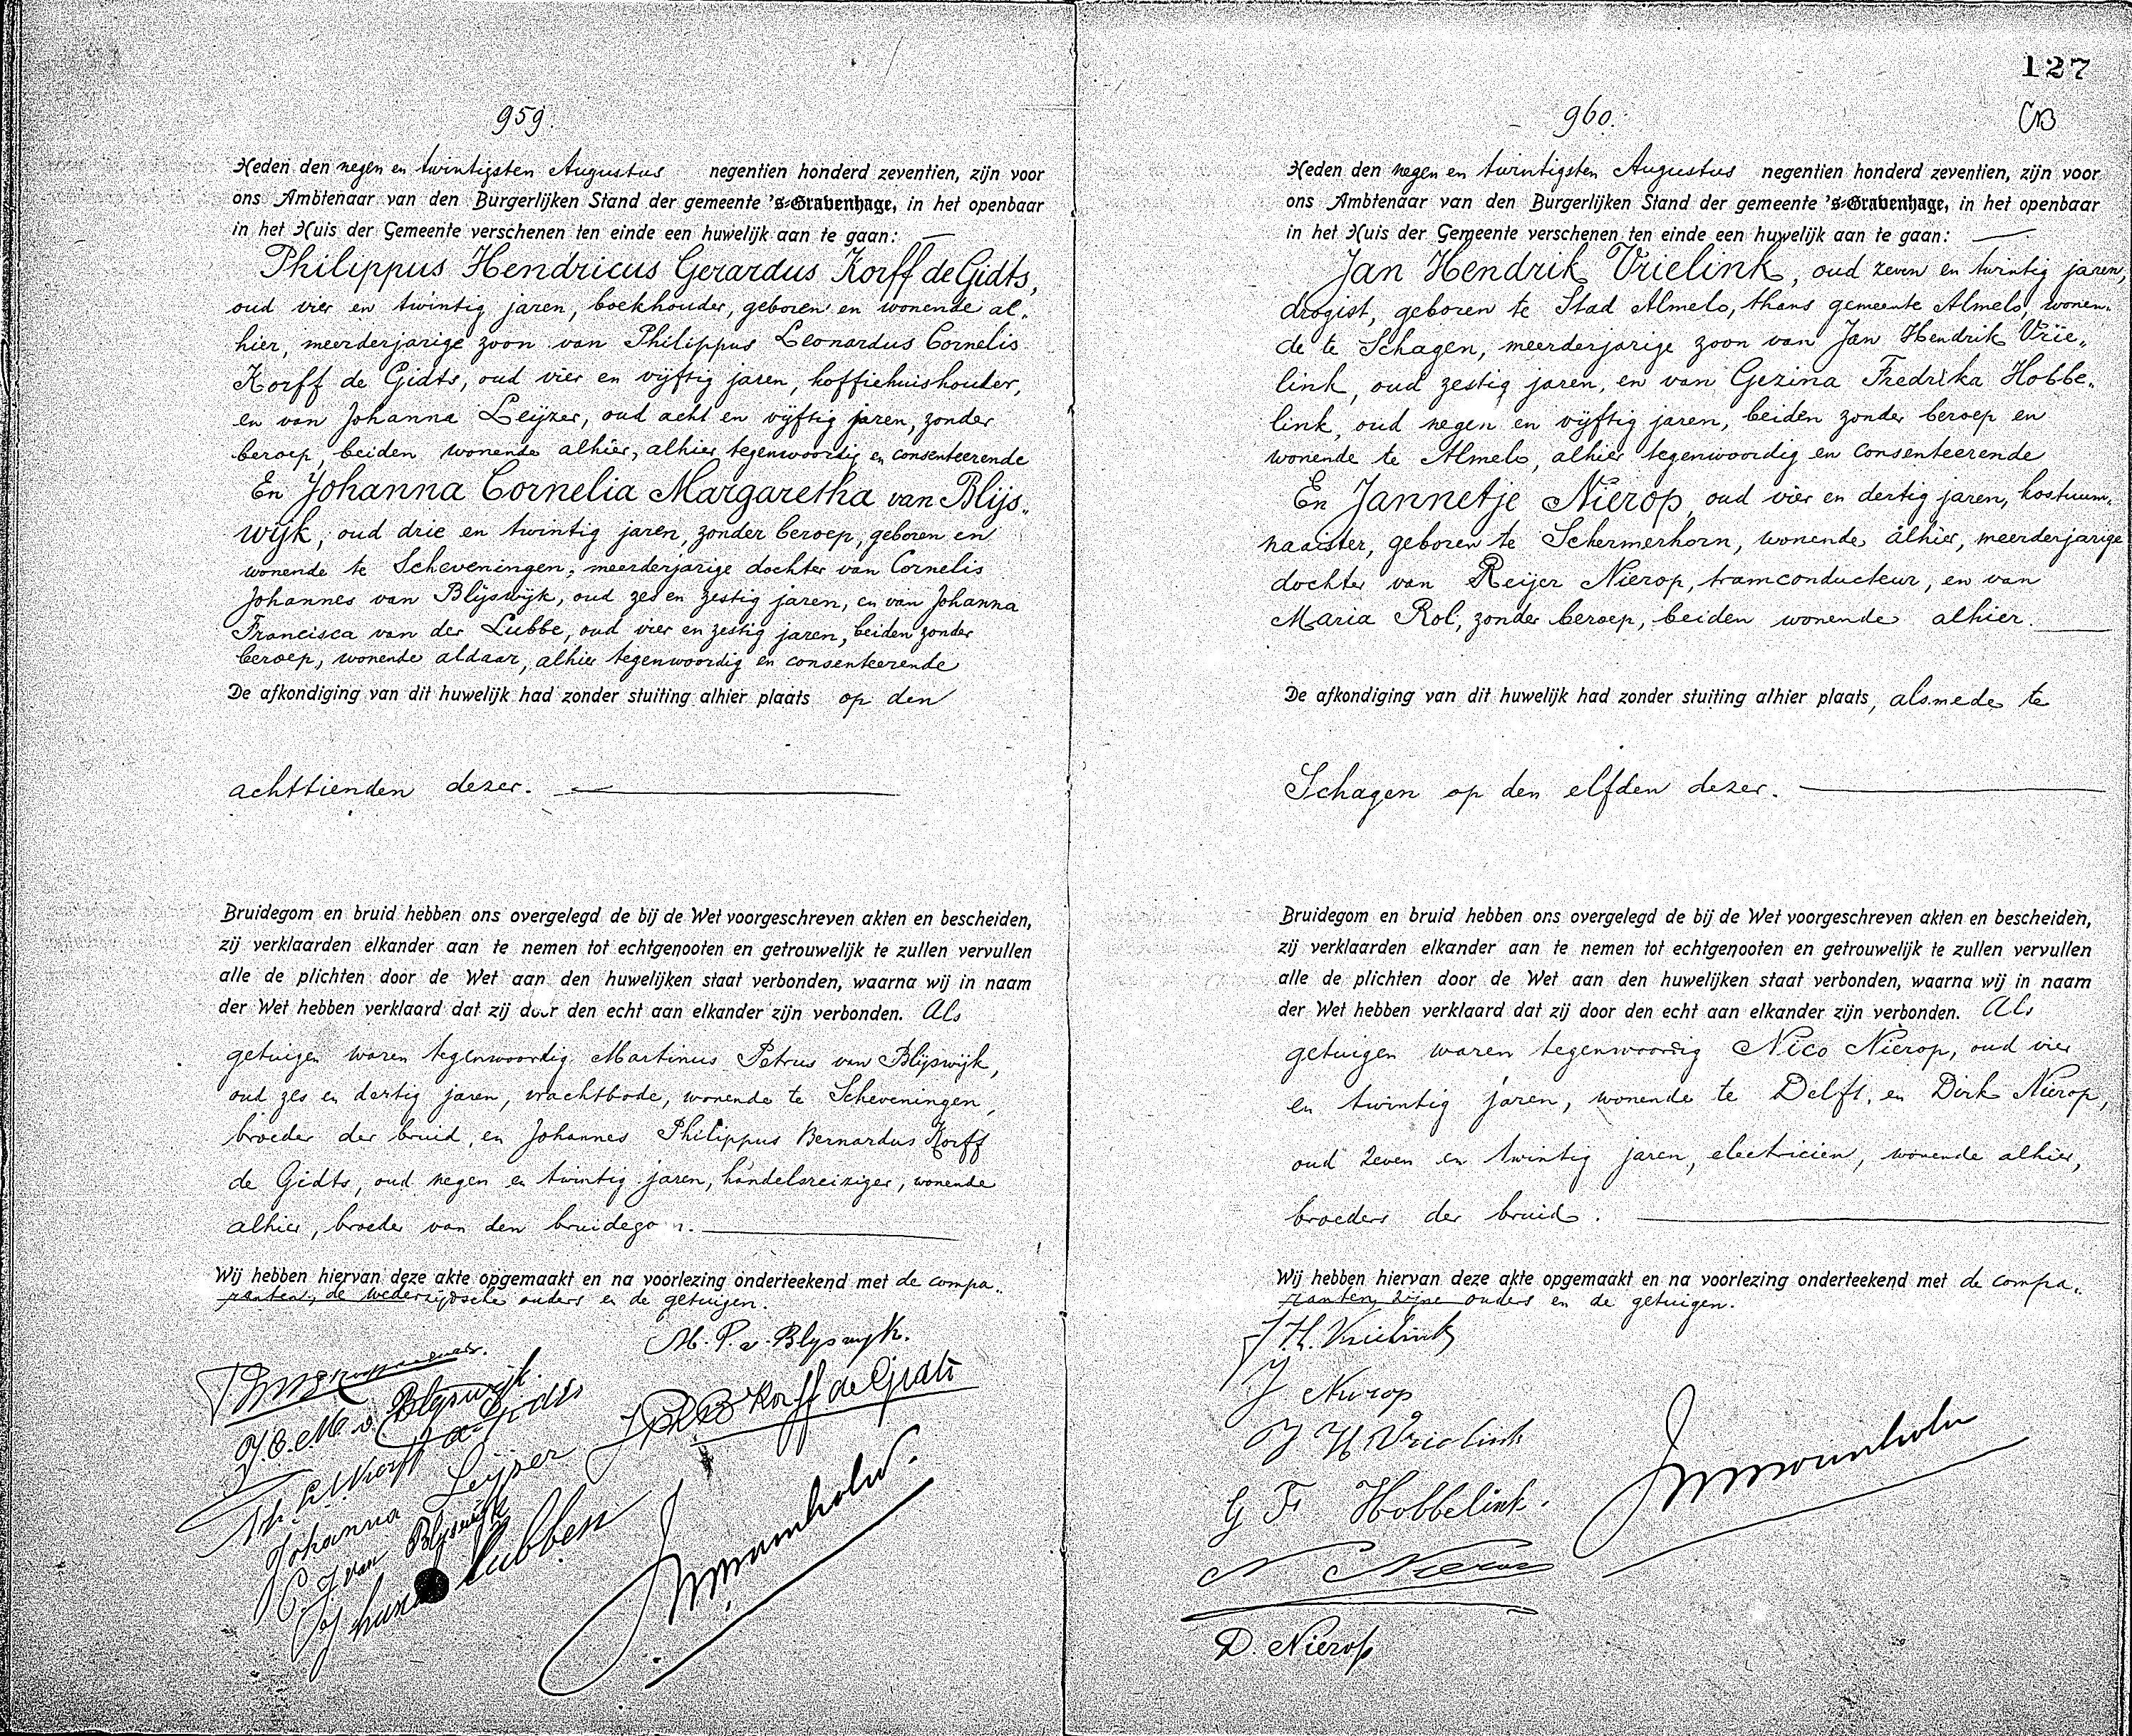 959.
Heden den negen en twintigsten Augustus negentien honderd zeventien, zijn voor
ons Ambtenaar van den Burgerlijken Stand der gemeente 's-Gravenhage, in het openbaar
in het Huis der Gemeente verschenen ten einde een huwelijk aan te gaan: —
Philippus Hendricus Gerardus Korff de Gidts,
oud vier en twintig jaren, boekhouder, geboren en wonende al„
hier, meerderjarige zoon van Philippus Leonardus Cornelis
Korff de Gidts, oud vier en vijftig jaren, koffiehuishouder,
en van Johanna Leijzer, oud acht en vijftig jaren, zonder
beroep, beiden wonende alhier, alhier tegenwoordig en consenteerende
En Johanna Cornelia Margaretha van Blijs„
wijk, oud drie en twintig jaren, zonder beroep, geboren en
wonende te Scheveningen, meerderjarige dochter van Cornelis
Johannes van Blijswijk, oud zes en zestig jaren, en van Johanna
Francisca van der Lubbe, oud vier en zestig jaren, beiden zonder
beroep, wonende aldaar, alhier tegenwoordig en consenteerende
De afkondiging van dit huwelijk had zonder stuiting alhier plaats op den
achttienden dezer.
Bruidegom en bruid hebben ons overgelegd de bij de Wet voorgeschreven akten en bescheiden,
zij verklaarden elkander aan te nemen tot echtgenooten en getrouwelijk te zullen vervullen
alle de plichten door de Wet aan den huwelijken staat verbonden, waarna wij in naam
der Wet hebben verklaard dat zij door den echt aan elkander zijn verbonden. Als
getuigen waren tegenwoordig Martinus Petrus van Blijswijk,
oud zes en dertig jaren, vrachtbode, wonende te Scheveningen,
broeder der bruid, en Johannes Philippus Bernardus Korff
de Gidts, oud negen en twintig jaren, handelsreiziger, wonende
alhier, broeder van den bruidegom.
Wij hebben hiervan deze akte opgemaakt en na voorlezing onderteekend met de compa„
ranten, de wederzijdsche ouders en de getuigen.
M. P. v. Blijswijk.
J. C. M. v. Blijswijk.
J Ph B Korff de Gidts
Johanna Leijzer
C. J van Blijswijk
127
960.
CB
Heden den negen en twintigsten Augustus negentien honderd zeventien, zijn voor
ons Ambtenaar van den Burgerlijken Stand der gemeente 's-Gravenhage, in het openbaar
in het Huis der Gemeente verschenen ten einde een huwelijk aan te gaan: —
Jan Hendrik Vrielink, oud zeven en twintig jaren,
drogist, geboren te Stad Almelo, thans gemeente Almelo, wonen„
de te Schagen, meerderjarige zoon van Jan Hendrik Vrie„
link, oud zestig jaren, en van Gezina Fredrika Hobbe„
link, oud negen en vijftig jaren, beiden zonder beroep en
wonende te Almelo, alhier tegenwoordig en consenteerende
En Jannetje Nierop, oud vier en dertig jaren, kostuum„
naaister, geboren te Schermerhorn, wonende alhier, meerderjarige
dochter van Reijer Nierop, tramconducteur, en van
Maria Rol, zonder beroep, beiden wonende alhier.
De afkondiging van dit huwelijk had zonder stuiting alhier plaats, alsmede te
Schagen op den elfden dezer.
Bruidegom en bruid hebben ons overgelegd de bij de Wet voorgeschreven akten en bescheiden,
zij verklaarden elkander aan te nemen tot echtgenooten en getrouwelijk te zullen vervullen
alle de plichten door de Wet aan den huwelijken staat verbonden, waarna wij in naam
der Wet hebben verklaard dat zij door den echt aan elkander zijn verbonden. Als
getuigen waren tegenwoordig Nico Nierop, oud vier
en twintig jaren, wonende te Delft, en Dirk Nierop,
oud zeven en twintig jaren, electricien, wonende alhier,
broeders der bruid.
Wij hebben hiervan deze akte opgemaakt en na voorlezing onderteekend met de compa„
ranten, zijne ouders en de getuigen.
J. H. Vrielink
J Nierop
J H Vrielink
G F Hobbelink.
N Nierop
D. Nierop